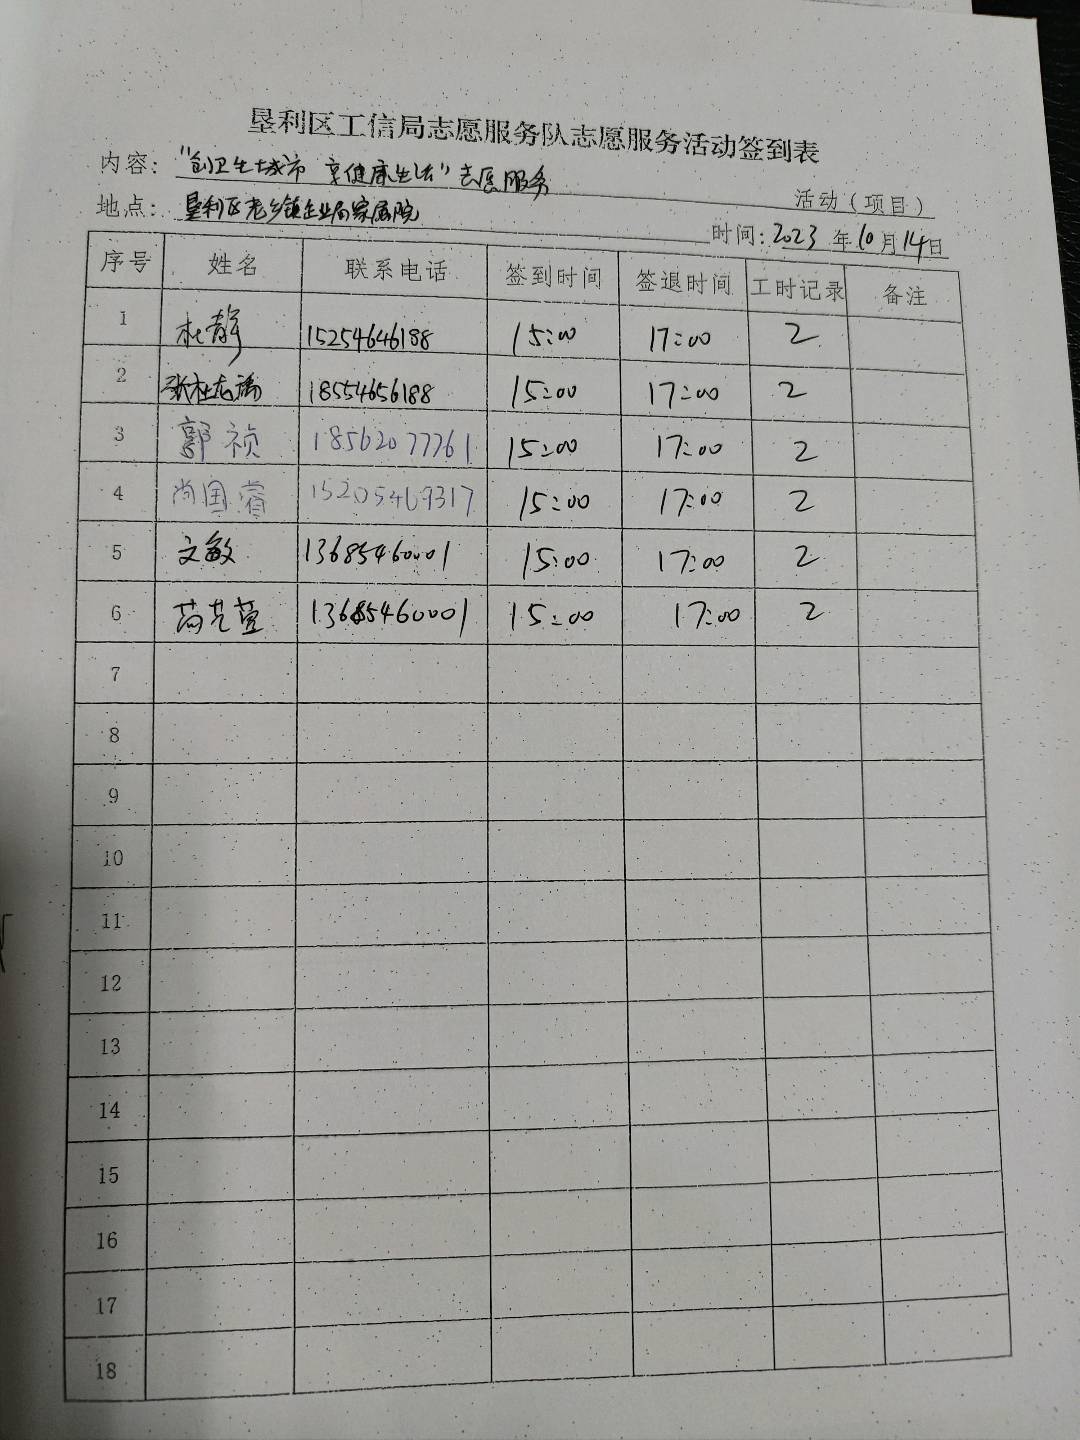 垦利区工信局志愿服务队志愿服务活动签到表
内容："创卫生城市 享健康生活"志愿服务 活动（项目）
地点：垦利区老乡镇企业局家属院
时间：2023年10月14日
序号 姓名 联系电话 签到时间 签退时间 工时记录 备注
1 杜静 15254646188 15:00 17:00 2
2 张杜 18554656188 15:00 17:00 2
3 郭祯 18562077761 15:00 17:00 2
4 尚国睿 15205469317 15:00 17:00 2
5 文敏 13685460001 15:00 17:00 2
6 13685460001 15:00 17:00 2
7
8
9
10
11
12
13
14
15
16
17
18